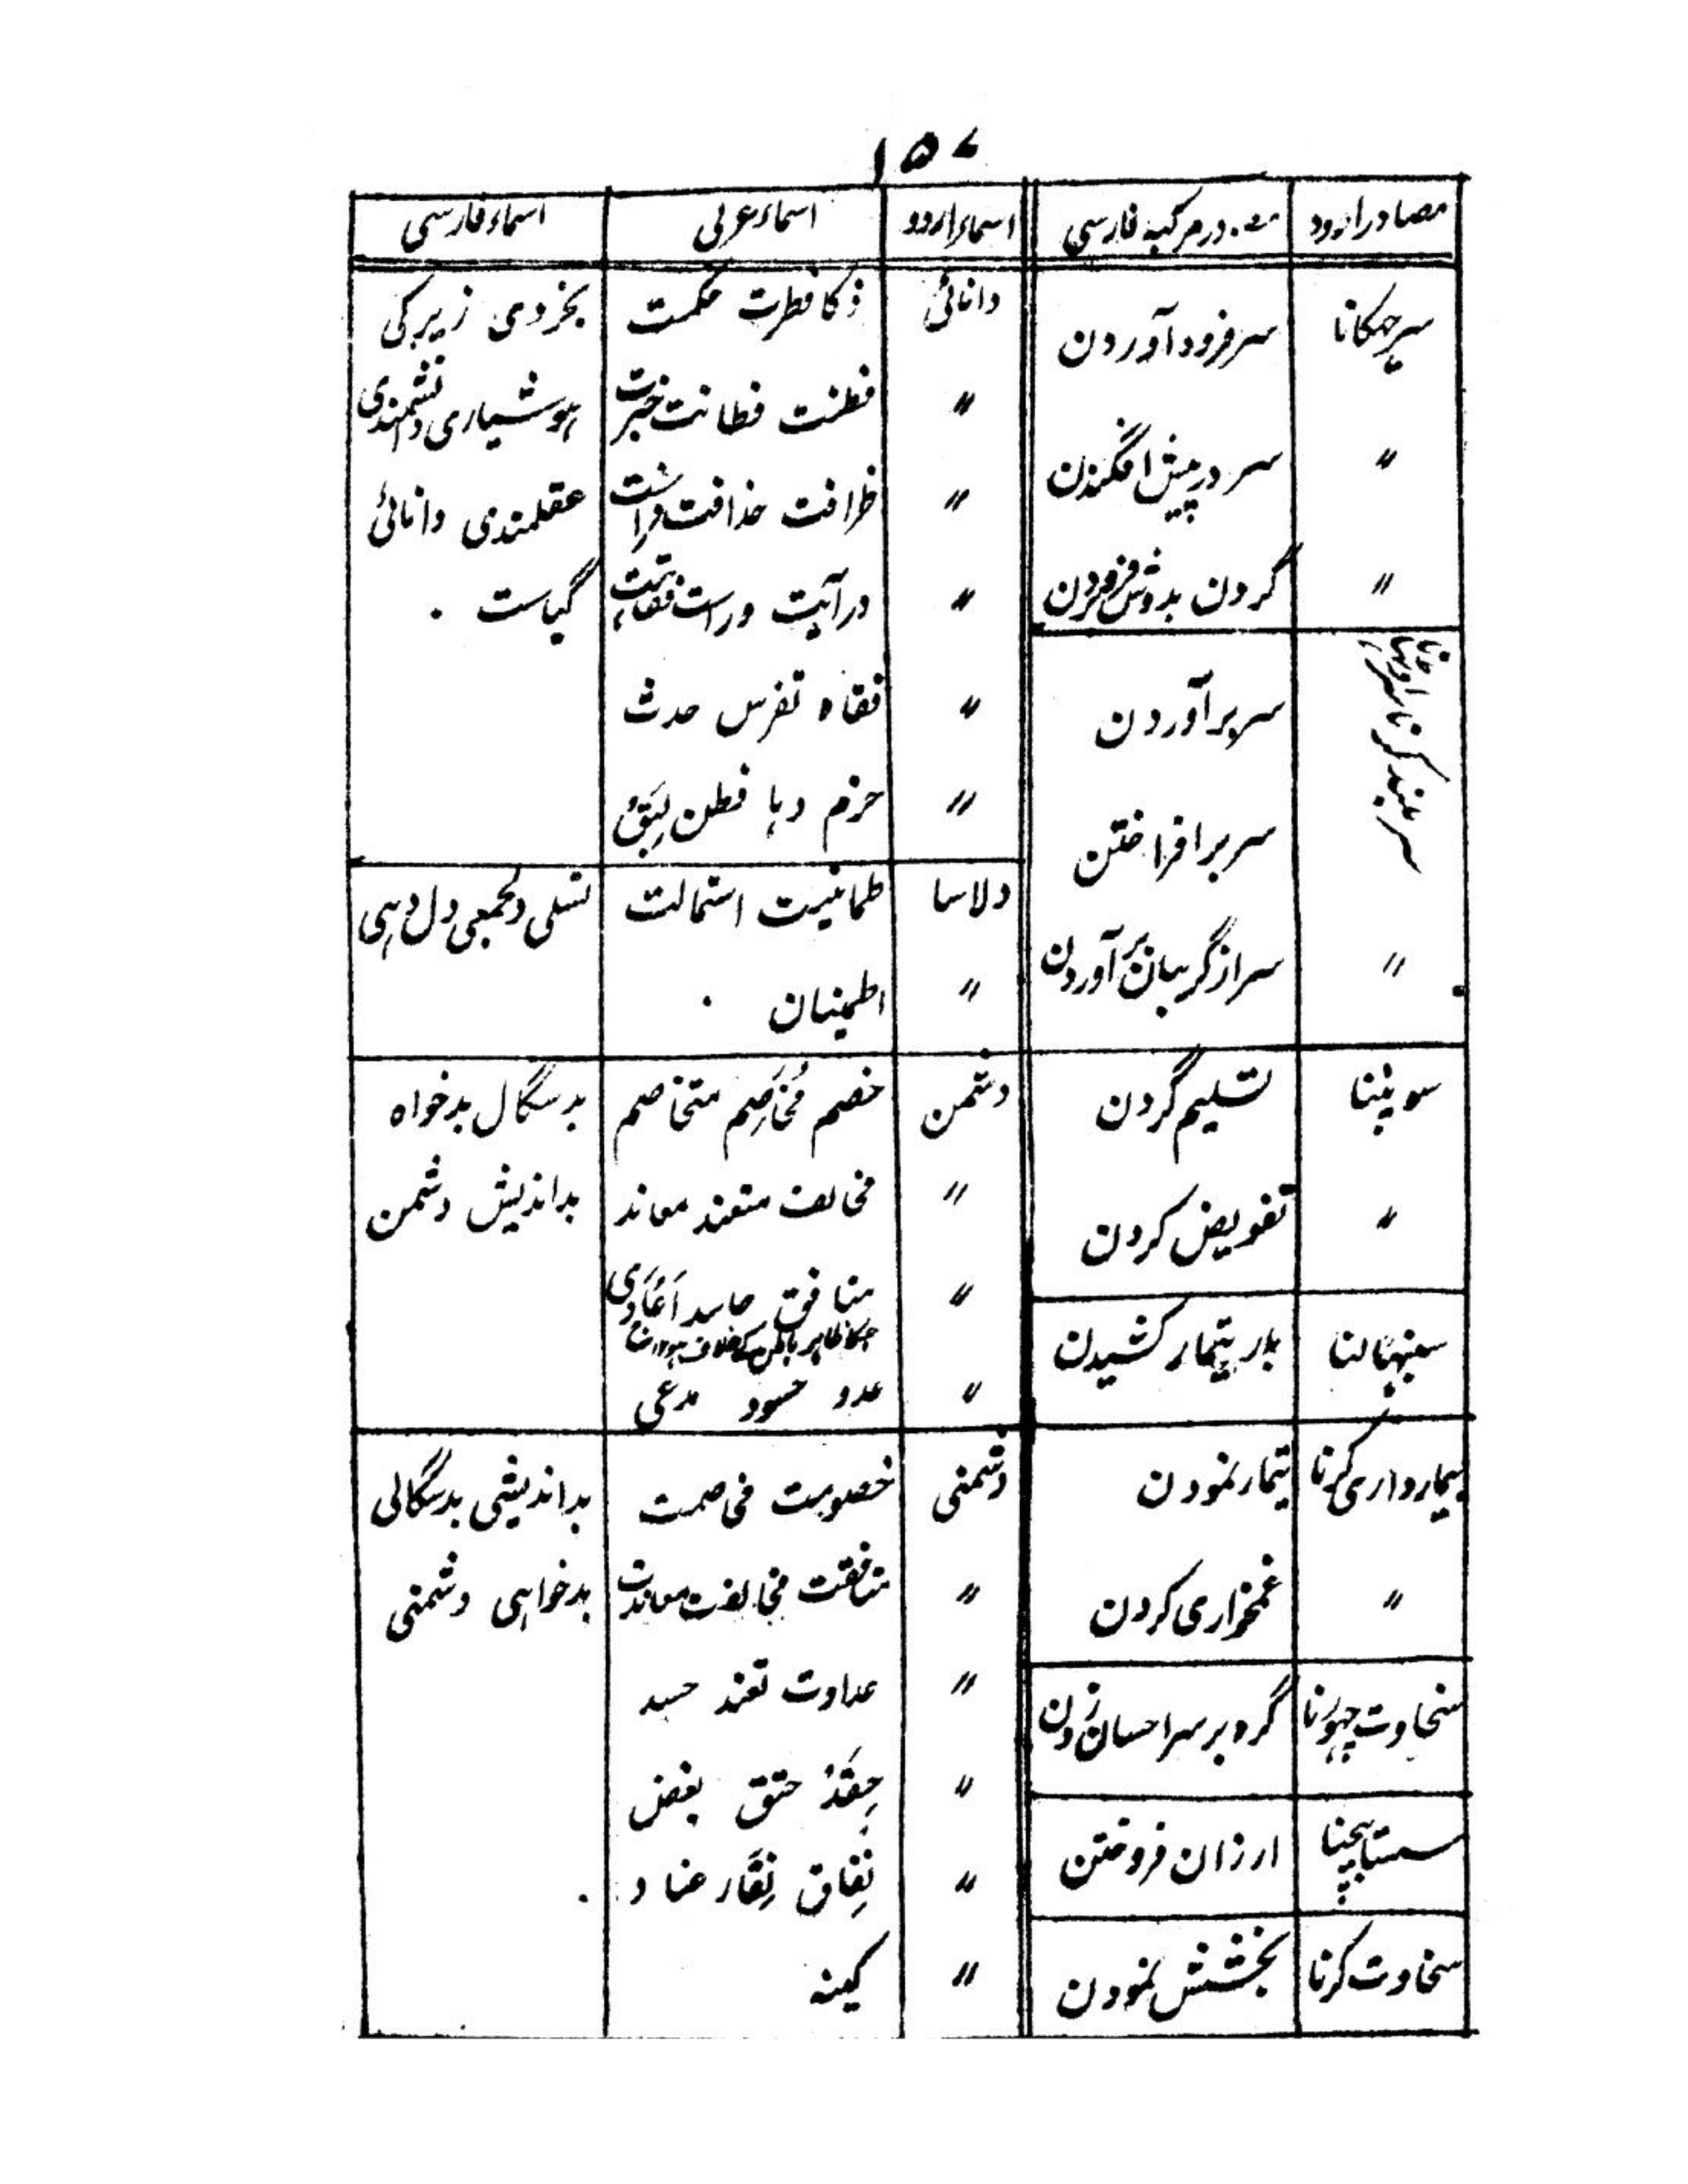 ۱۵۷
مصادر اردو
مصادر مرکبہ فارسی
اسماء اردو
اسماء عربی
اسماء فارسی
سر جھکانا
سر فرود آوردن
"
سر در پیش افگندن
"
گردن بدوش فرو بردن
سر بلند کرنا
سر بر آوردن
سر بر افراختن
"
سر از گریبان بر آوردن
سوپنا
تسلیم کردن
"
تفویض کردن
سنبھالنا
بار تیمار کشیدن
بیمارداری کرنا
تیمار نمودن
"
غمخواری کردن
سخاوت چھوڑنا
گرد بر سر احسان زدن
سستا بیچنا
ارزان فروختن
سخاوت کرنا
بخشش نمودن
دانائی
ذکا فطرت حکمت
بخردی زیرکی
"
فطنت فطانت خبرت
ہوشیاری دانشمندی
"
ظرافت حذاقت فراست
عقلمندی دانائی
"
درآیت وراست فقاہت
گیاست
"
فقاہ تفرس حدث
"
حزم دہا فطن
دلاسا
طمانیت استمالت
تسلی دلجمعی دل دہی
"
اطمینان
دشمن
خصم مُخَاصِم متخاصم
بدسگال بدخواہ
"
مخالف متعند معاند
بداندیش دشمن
"
منافق حاسد اَعَادِی
جسکا ظاہر باطن کے خلاف ہو
"
عدو حسود مدعی
دشمنی
خصومت مخاصمت
بداندیشی بدسگالی
"
منافقت مخالفت معاندت
بدخواہی دشمنی
"
عداوت تعند حسد
"
حِقَد حنق بغض
"
نِفاق نِقَار عناد
"
کینہ